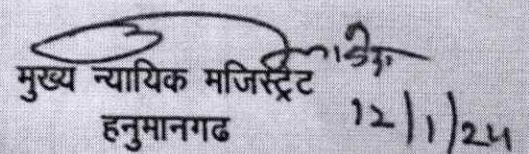 मुख्य न्यायिक मजिस्ट्रेट
हनुमानगढ
12/1/24